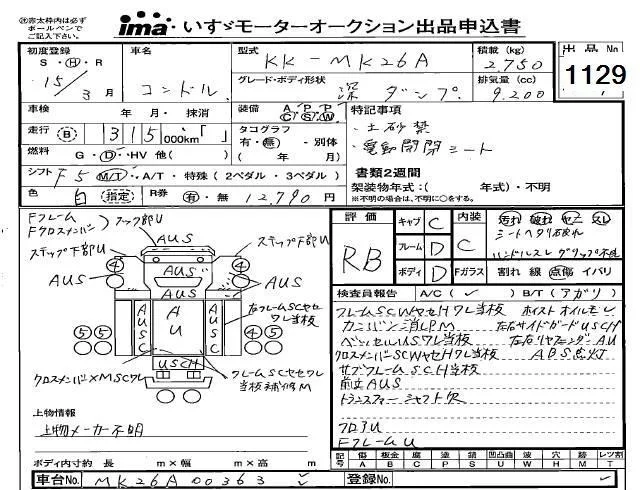 ㊟赤太枠内は必ず
ボールペンで
ご記入下さい。
ima いすゞモーターオークション出品申込書
初度登録
S・H・R
15/3月
車名
コンドル
型式
KK-MK26A
積載 (kg)
2.750
グレード・ボディ形状
深ダンプ
排気量 (cc)
9.200
出品No
1129
車検 年・月・抹消
装備 A/C P/S P/W
特記事項
・土砂禁
・電動開閉シート
走行 B 315 000km・「 」
タコグラフ
有・無・別体
( 年 月)
燃料 G・D・HV 他( )
シフト F5 M/T・A/T・特殊 (2ペダル・3ペダル)
書類2週間
架装物年式:( 年式)・不明
※不明の場合は、不明に○をする。
色 白 (指定) R券 有・無 12,790円
Fフレーム
Fクロスメンバ フック部U
ステップ下部U
ステップ下部U
AUS
AUS
AUS
AUS
AUS
④
④
AUSC
AU
AUSC
右フレームSCヤセ
ワレ当板
⑤⑤
④⑤
USCH
クロスメンバ×MSCワレ
フレームSCヤセワレ
当板補修M
評価
RB
キャブ C
フレーム D
ボディ D
内装 C
Fガラス
汚れ 破れ ヤケ スレ
シートヘタリ破れ
ハンドルスレ グリップ不良
割れ 線 点傷 イバリ
検査員報告 A/C ( ✓ ) B/T (アガリ)
フレームSCWヤセHワレ当板 ホイストオイルモレ
カニバン消しPM 左右サイドガードUSCH
クロスメンバSCWヤセHワレ当板 ABS点灯
サブフレームSCH当板
前立AUS
トランスファーシャフト欠
フロアU
FフレームU
上物情報
上物メーカー不明
ボディ内寸約 長 m×幅 m×高 m
記号 傷A 板金B 腐C 塗P 錆S 凹凸曲U 波W 穴H 跡M レツ割T
車台No. MK26A 00363 ✓
登録No.